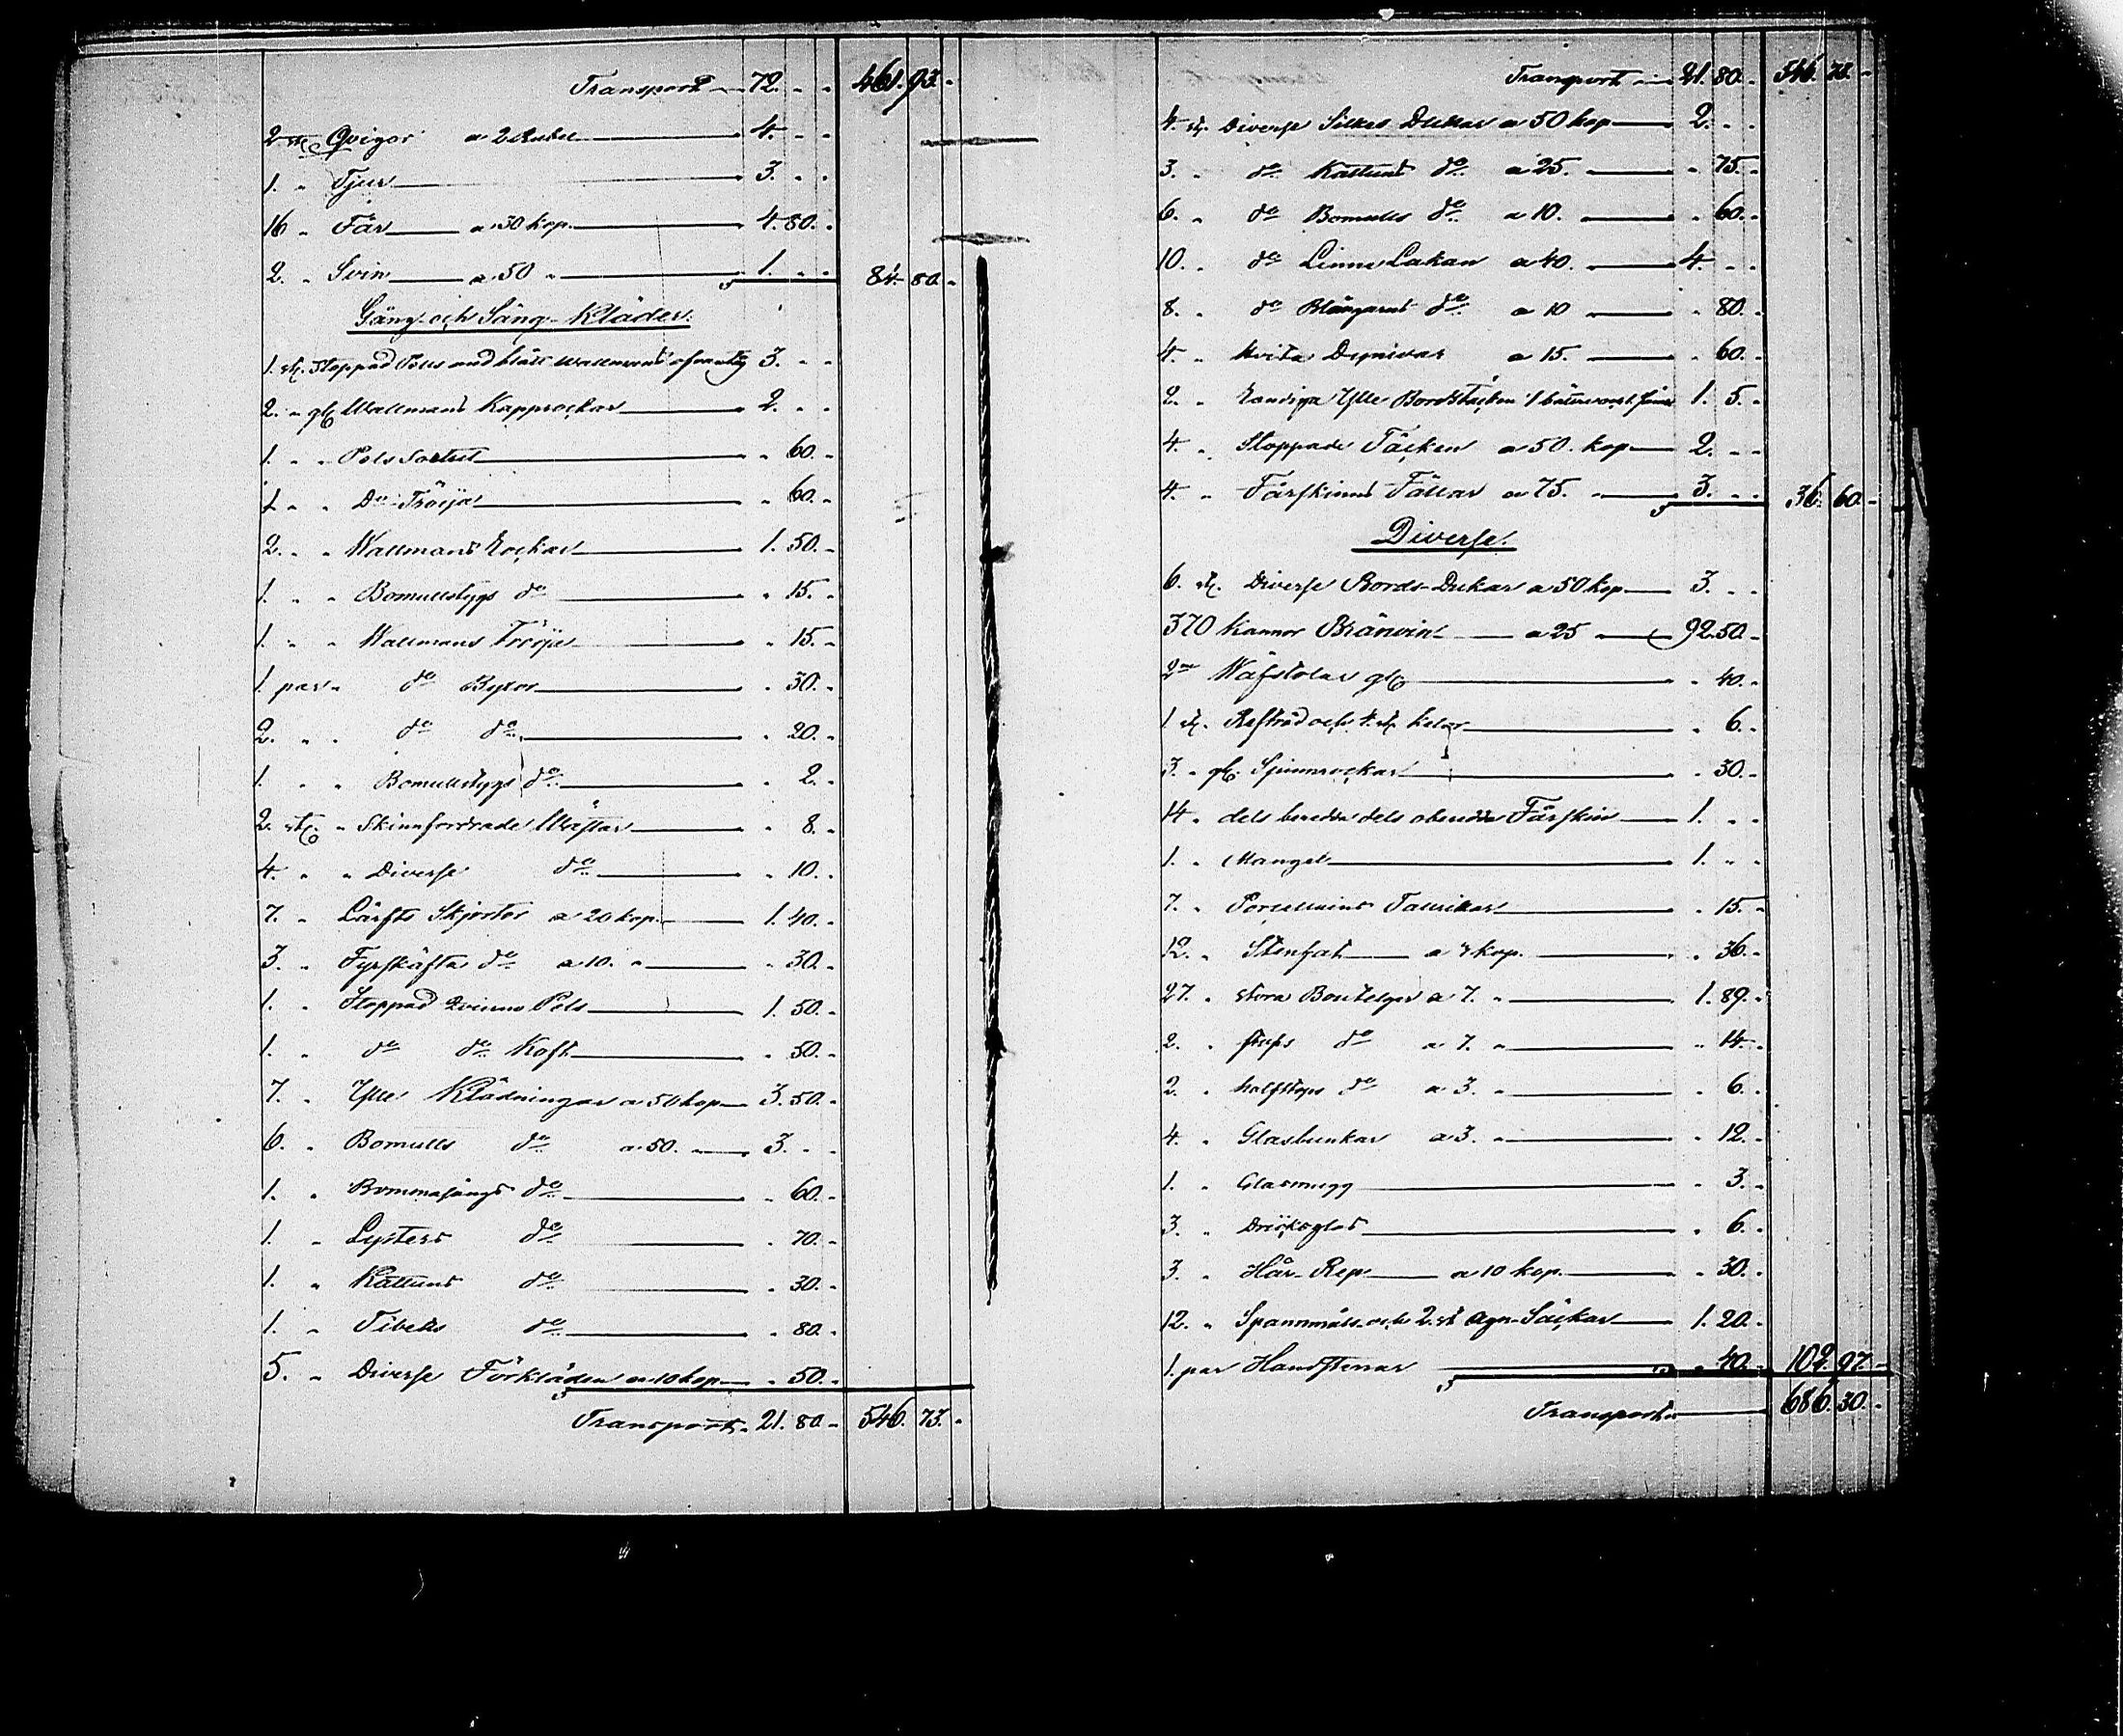 Transport 72. - - 461. 93. -
2 st. Qvigor a 2 Rubel 4. - -
1. " Tjur 3. - -
16 " Får a 30 kop. 4. 80. -
2. " Svin a 50 " 1. - - 84. 80. -
Gång- och Säng-Kläder.
1. st. Stoppad Pels med blått Wallmans 3. - -
2. " gl. Wallmans Kapprockar 2. - -
1. " " Pels - 60. -
1. " " Do Tröija - 60. -
2. " " Wallmans Rockar 1. 50. -
1. " " Bomullstygs do - 15. -
1. " " Wallmans Tröija - 15. -
1. par " do Byxor - 30. -
2. " " do do - 20. -
1. " " Bomullstygs do - 2. -
2. st. " Skinnfordrade Wästar - 8. -
4. " " Diverse do - 10. -
7. " Lärfts Skjortor a 20 kop. 1. 40. -
3. " Fyrskäfta do a 10. " - 30. -
1. " Stoppad Qvinno Pels 1. 50. -
1. " do do Koft - 50. -
7. " Ylle Klädningar a 50 kop 3. 50. -
6. " Bomulls do a 50. 3. - -
1. " do - 60. -
1. " Lysters do - 70. -
1. " Kattuns do - 30. -
1. " Tibets do - 80. -
5. " Diverse Förkläden a 10 kop - 50. -
Transport 21. 80. - 546. 73. -
Transport 21. 80. - 546. 73. -
4. st. Diverse Silkes Dukar a 50 kop 2. - -
3. " do Kattuns do a 25. - 75. -
6. " do Bomulls do a 10. - 60. -
10. " do Linne Lakan a 40. 4. - -
8. " do Blångarns do a 10 - 80. -
4. " hvita Dynivar a 15. - 60. -
2. " Randiga Ylle Bordstäcken 1. 5. -
4. " Stoppade Täcken a 50. kop 2. - -
4. " Fårskinns Fällar a 75. " 3. - - 36. 60. -
Diverse.
6. st. Diverse Bords-Dukar a 50 kop 3. - -
370 Kannor Bränvin a 25 92. 50. -
2ne Wäfstolar gl. - 40. -
1 st. och 4. st. - 6. -
3. " gl. Spinnrockar - 30. -
14 " dels beredda dels oberedda Fårskin 1. - -
1. " Mangel 1. - -
7. " Porcellains Tallrikar - 15. -
12. " Stenfat a 3 kop. - 36. -
27. " stora Boutelger a 7. " 1. 89. -
2. " stops do a 7. " - 14. -
2. " halfstops do a 3. " - 6. -
4. " Glasbunkar a 3. " - 12. -
1. " Glasmugg - 3. -
3. " Dricksglas - 6. -
3. " Hår-Rep a 10 kop. - 30. -
12. " Spannmåls- och 2. st Agn-Säckar 1. 20. -
1. par Handstenar - 40. - 102. 97. -
Transport 686. 30. -